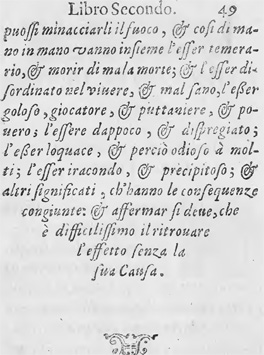 Libro Secondo. 49
puossi minacciarli il fuoco, & cosi di ma-
no in mano vanno insieme l'esser temera-
rio, & morir di mala morte; & l'esser di-
sordinato nel viuere, & mal sano, l'eßer
goloso, giocatore, & puttaniere, & po-
uero; l'essere dappoco, & dispregiato;
l'eßer loquace, & perciò odioso à mol-
ti; l'esser iracondo, & precipitoso; &
altri significati, ch'hanno le consequenze
congiunte: & affermar si deue, che
è difficilissimo il ritrouare
l'effetto senza la
sua Causa.